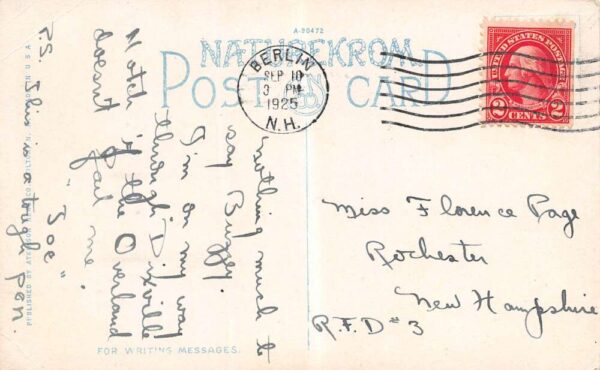 A-90472
NATUREKROM
POST CARD
BERLIN
SEP 10
3 PM
1925
N.H.
UNITED STATES POSTAGE
2 CENTS 2
nothing much to
say Buggy.
I'm on my way
through Dixville
Notch if the Overland
doesn't fail me.
"Joe"
P.S. This is a tough pen.
Miss Florence Page
Rochester
New Hampshire
R.F.D #3
FOR WRITING MESSAGES.
PUBLISHED BY
U.S.A.